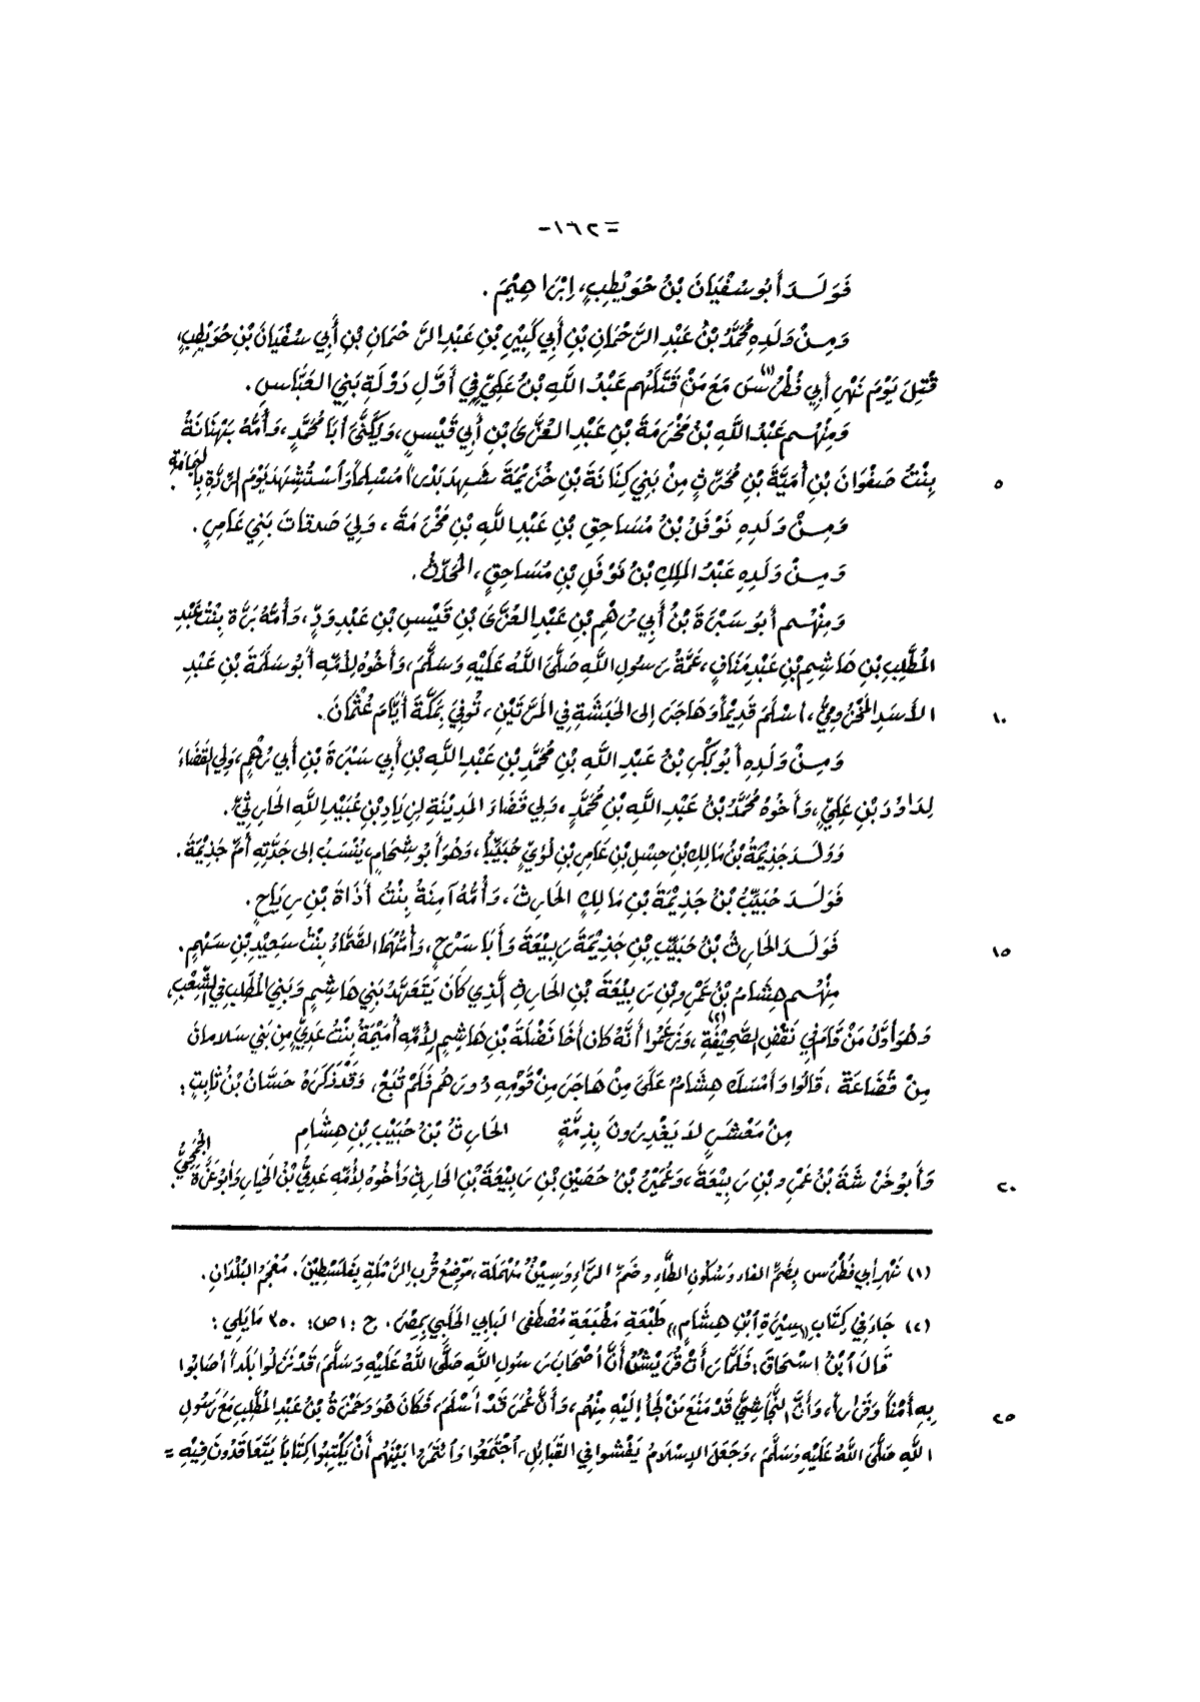 -١٦٢=
فَوَلَدَ أَبُو سُفْيَانَ بْنُ حُوَيْطِبٍ، اِبْرَاهِيْمَ.
وَمِنْ وَلَدِهِ مُحَمَّدُ بْنُ عَبْدِ الرَّحْمَانِ بْنِ أَبِي كَبِيْرِ بْنِ عَبْدِ الرَّحْمَانِ بْنِ أَبِي سُفْيَانَ بْنِ حُوَيْطِبٍ،
قُتِلَ يَوْمَ نَهْرِ أَبِي فُطْرُسَ (١) مَعَ مَنْ قَتَلَهُم عَبْدُ اللَّهِ بْنُ عَلِيٍّ فِي أَوَّلِ دَوْلَةِ بَنِي العَبَّاسِ.
وَمِنْهُم عَبْدُ اللَّهِ بْنُ مَخْرَمَةَ بْنِ عَبْدِ العُزَّىٰ بْنِ أَبِي قَيْسٍ، وَيُكَنَّىٰ أَبَا مُحَمَّدٍ، وَأُمُّهُ بَهْنَانَةُ
بِنْتُ صَفْوَانَ بْنِ أُمَيَّةَ بْنِ مُحَرِّثٍ مِنْ بَنِي كِنَانَةَ بْنِ خُزَيْمَةَ شَهِدَ بَدْراً مُسْلِماً وَاُسْتُشْهِدَ يَوْمَ الرِّدَّةِ بِاليَمَامَةِ. ٥
وَمِنْ وَلَدِهِ نَوْفَلُ بْنُ مُسَاحِقِ بْنِ عَبْدِ اللَّهِ بْنِ مَخْرَمَةَ، وَلِيَ صَدقَاتَ بَنِي عَامِرٍ.
وَمِنْ وَلَدِهِ عَبْدُ المَلِكِ بْنُ نَوْفَلِ بْنِ مُسَاحِقٍ، المُحَدِّثُ.
وَمِنْهُم أَبُو سَبْرَةَ بْنُ أَبِي رُهْمِ بْنِ عَبْدِ العُزَّىٰ بْنِ قَيْسِ بْنِ عَبْدِ وَدٍّ، وَأُمُّهُ بَرَّةُ بِنْتُ عَبْدِ
المُطَّلِبِ بْنِ هَاشِمِ بْنِ عَبْدِ مَنَافٍ، عَمَّةُ رَسُولِ اللَّهِ صَلَّىٰ اللَّهُ عَلَيْهِ وَسَلَّمَ، وَأَخُوهُ لِأُمِّهِ أَبُو سَلَمَةَ بْنِ عَبْدِ
الأَسَدِ المَخْزُومِيُّ، اسْلَمَ قَدِيْماً وَهَاجَرَ إلى الحَبَشَةِ فِي المَرَّتَيْنِ، تُوُفِّيَ بِمَكَّةَ أَيَّامَ عُثْمَانَ. ١٠
وَمِنْ وَلَدِهِ أَبُو بَكْرِ بْنُ عَبْدِ اللَّهِ بْنِ مُحَمَّدِ بْنِ عَبْدِ اللَّهِ بْنِ أَبِي سَبْرَةَ بْنِ أَبِي رُهْمٍ، وَلِيَ القَضَاءَ
لِدَاوُدَ بْنِ عَلِيٍّ، وَأَخُوهُ مُحَمَّدُ بْنُ عَبْدِ اللَّهِ بْنِ مُحَمَّدٍ، وَلِيَ قَضَاءَ المَدِيْنَةِ لِزِيَادِ بْنِ عُبَيْدِ اللَّهِ الحَارِثِيِّ.
وَوَلَدَ جَذِيْمَةُ بْنُ مَالِكِ بْنِ حِسْلِ بْنِ عَامِرِ بْنِ لُؤَيٍّ حُبَيِّباً، وَهُوَ أَبُو شِحَامٍ، يُنْسَبُ إلى جَدَّتِهِ أُمِّ جَذِيْمَةَ.
فَوَلَدَ حُبَيِّبُ بْنُ جَذِيْمَةَ بْنِ مَالِكٍ الحَارِثَ، وَأُمُّهُ آمِنَةُ بِنْتُ أَذَاةَ بْنِ رِيَاحٍ.
فَوَلَدَ الحَارِثُ بْنُ حُبَيِّبِ بْنِ جَذِيْمَةَ رَبِيْعَةَ وَأَبَا سَرْحٍ، وَأُمُّهُمَا القَمَّاءُ بِنْتُ سَعِيْدِ بْنِ سَهْمٍ. ١٥
مِنْهُم هِشَامُ بْنُ عَمْرِو بْنِ رَبِيْعَةَ بْنِ الحَارِثِ الَّذِي كَانَ يَتَعَهَّدُ بَنِي هَاشِمٍ وَبَنِي المُطَّلِبِ فِي الشِّعْبِ،
وَهُوَ أَوَّلُ مَنْ قَامَ فِي نَقْضِ الصَّحِيْفَةِ (٢)، وَزَعَمُوا أَنَّهُ كَانَ أَخَا نَضْلَةَ بْنِ هَاشِمٍ لِأُمِّهِ أُمَيْمَةُ بِنْتُ عَدِيٍّ مِن بَنِي سَلَامَانَ
مِنْ قُضَاعَةَ، قَالُوا وَأَمْسَكَ هِشَامُ عَلَىٰ مِنْ هَاجَرَ مِنْ قَوْمِهِ دُورَهُم فَلَمْ تُبَعْ، وَقَدْ ذَكَرَهُ حَسَّانُ بْنُ ثَابِتٍ:
مِنْ مَعْشَرٍ لَا يَغْدِرُونَ بِذِمَّةٍ الحَارِثُ بْنُ حُبَيْبِ بْنِ هِشَامِ
وَأَبُو خَرْشَةَ بْنُ عَمْرِو بْنِ رَبِيْعَةَ، وَعُمَيْرُ بْنُ حُصَيْنِ بْنِ رَبِيْعَةَ بْنِ الحَارِثِ وَأَخُوهُ لِأُمِّهِ عَدِيُّ بْنُ الخِيَارِ وَأَبُو عَزَّةَ الجُمَحِيُّ. ٢٠
(١) نَهْرُ أَبِي فُطْرُس بِضَمِّ الفَاء وَسُكُونِ الطَّاءِ وضَمِّ الرَّاءِ وَسِيْنٌ مُهْمَلَة، مَوْضِعُ قُرْبِ الرَّمْلَةِ بِفَلَسْطِيْنَ. مُعْجَمُ البُلْدَانِ.
(٢) جَاءَ فِي كِتَابِ «سِيْرَةِ اُبْنِ هِشَامٍ» طَبْعَةِ مَطْبَعَةِ مُصْطَفَى البَابِي الحَلَبِي بِمِصْرَ. ج: ١ ص: ٣٥٠ مَايَلِي:
قَالَ اُبْنُ إِسْحَاقَ: فَلَمَّا رَأَتْ قُرَيْشُ أَنَّ أَصْحَابَ رَسُولِ اللَّهِ صَلَّىٰ اللَّهُ عَلَيْهِ وَسَلَّمَ، قَدْ نَزَلُوا بَلَداً أَصَابُوا
بِهِ أَمْناً وَقَرَاراً، وَأَنَّ النَّجَاشِيَّ قَدْ مَنَعَ مَنْ لَجَأَ إِلَيْهِ مِنْهُم، وَأَنَّ عُمَرَ قَدْ أَسْلَمَ، فَكَانَ هُوَ وَحَمْزَةُ بْنُ عَبْدِ المُطَّلِبِ مَعَ رَسُولِ ٢٥
اللَّهِ صَلَّىٰ اللَّهُ عَلَيْهِ وَسَلَّمَ، وَجَعَلَ الإِسْلَامُ يَفْشُوا فِي القَبَائِلِ، اُجْتَمَعُوا وَائْتَمَرُوا بَيْنَهُم أَنْ يَكْتِبُوا كِتَاباً يَتَعَاقَدُونَ فِيْهِ =